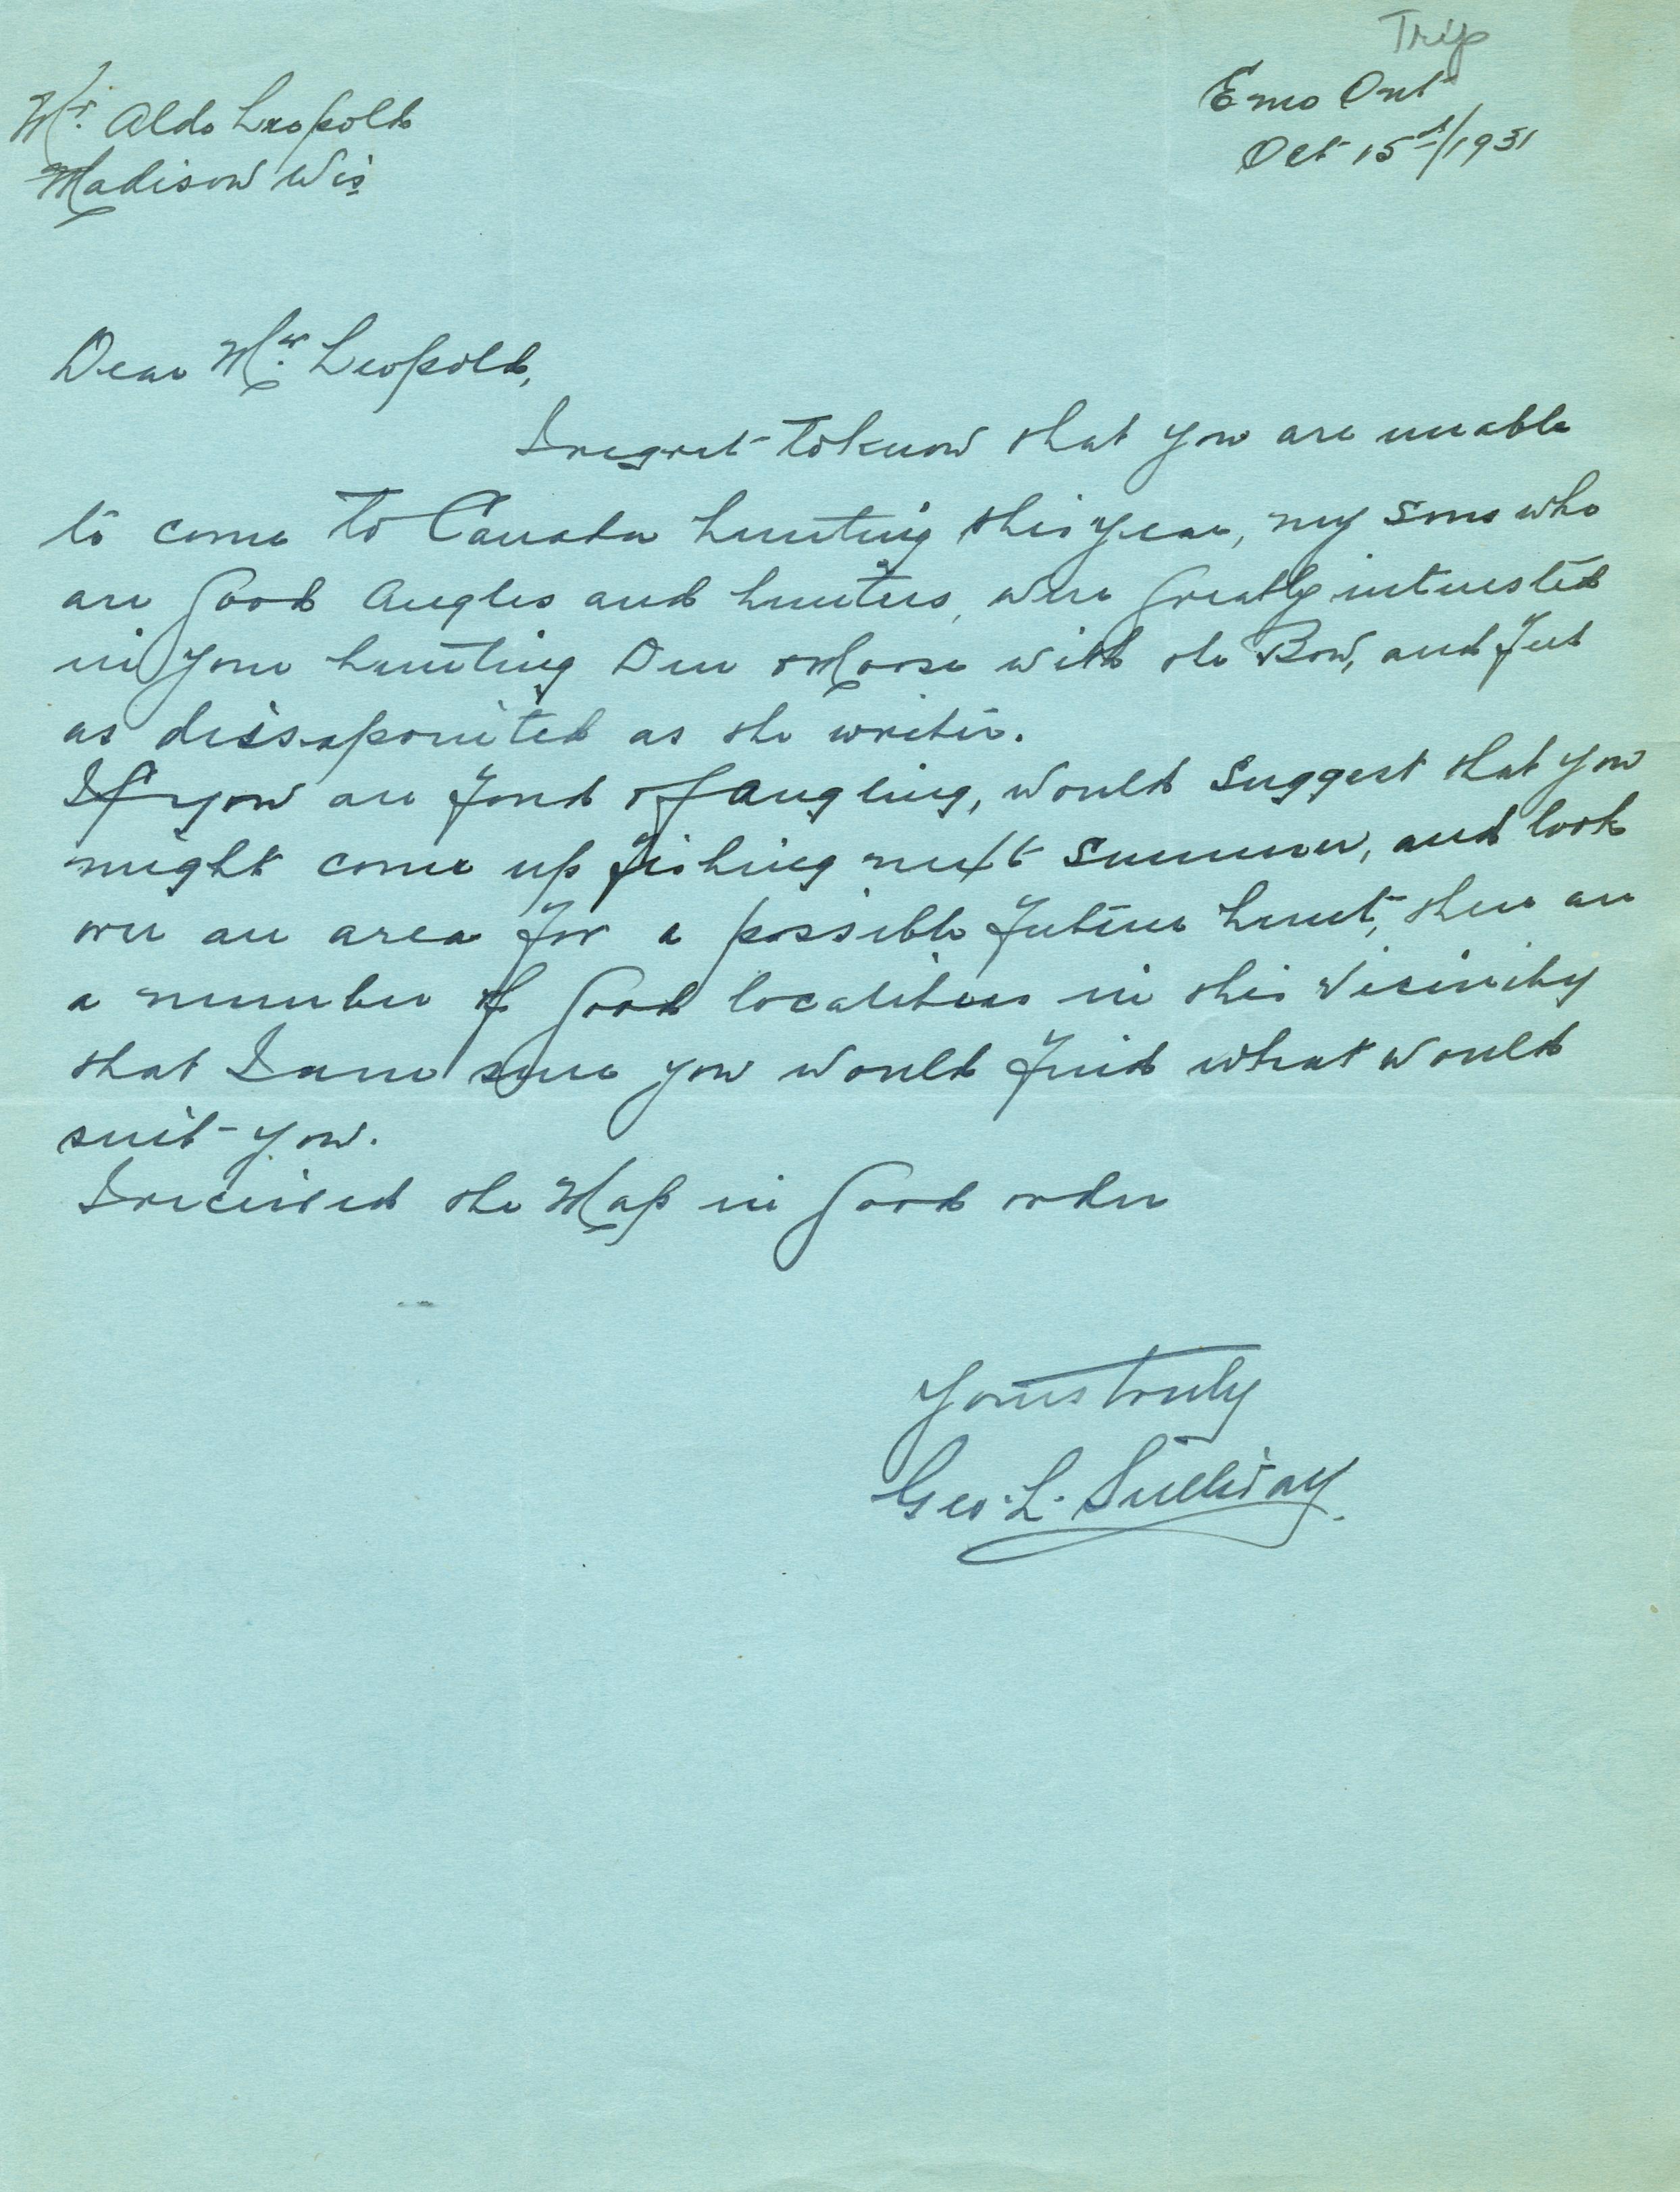 Trip
Emo Ont
Oct 15th/1931
Mr. Aldo Leopold
Madison Wis
Dear Mr. Leopold,
I regret to know that you are unable
to come to Canada hunting this year, my sons who
are Good Angles and hunters, were Greatly interested
in your hunting Deer & Moose with the Bow, and feel
as dissapointed as the writer.
If you are fond of Angling, would suggest that you
might come up fishing next summer, and look
over an area for a possible future hunt, there are
a number of Good localities in this vicinity
that I am sure you would find what would
suit you.
I received the Map in Good order
Yours truly
Geo. L.